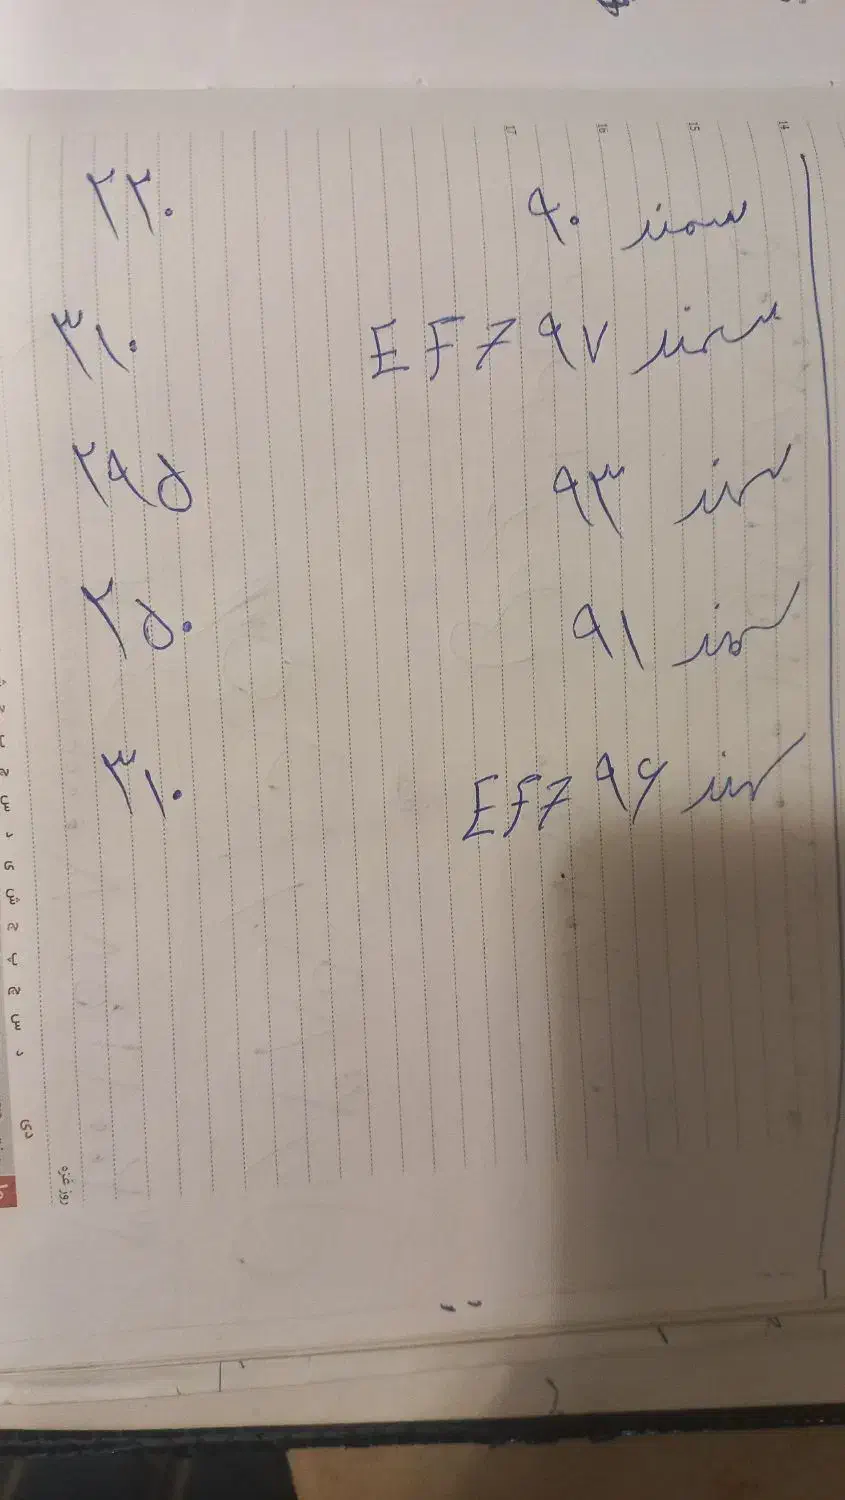 سمند ۹۰ ۲۲۰
سمند ۹۷ EF7 ۳۱۰
سمند ۹۳ ۲۹۵
سمند ۹۱ ۲۵۰
سمند ۹۶ EF7 ۳۱۰
14
15
16
17
روز غزه
دی